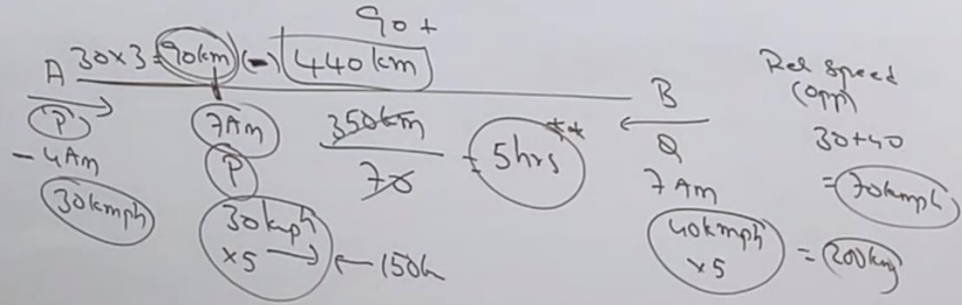 90+
A 30×3=90km (-) 440km B
Rel Speed
(opp)
P 7AM 350km = 5hrs ** Q 30+40
-4AM P 70 7AM = 70kmph
30kmph 30kmph 40kmph = 200km
×5 → ←150k ×5